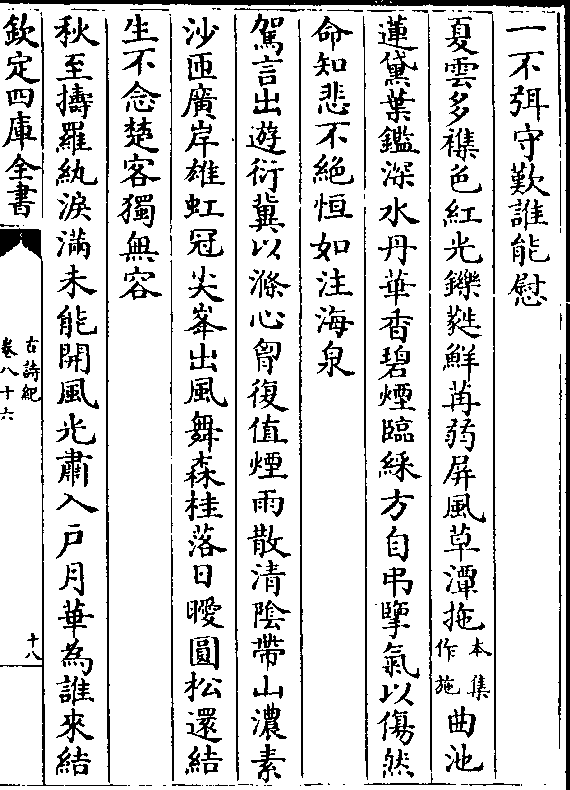 一不弭守歎誰能慰
夏雲多襍色紅光鑠蕤鮮苒弱屏風草潭拖本集作施曲池
蓮黛葉鑑深水丹華香碧煙臨綵方自弔擥氣以傷然
命知悲不絕恒如注海泉
駕言出遊衍冀以滌心胷復值煙雨散清陰帶山濃素
沙匝廣岸雄虹冠尖峯出風舞森桂落日曖圓松還結
生不念楚客獨無容
秋至擣羅紈淚滿未能開風光肅入戶月華為誰來結
欽定四庫全書
古詩紀
卷八十六
十八